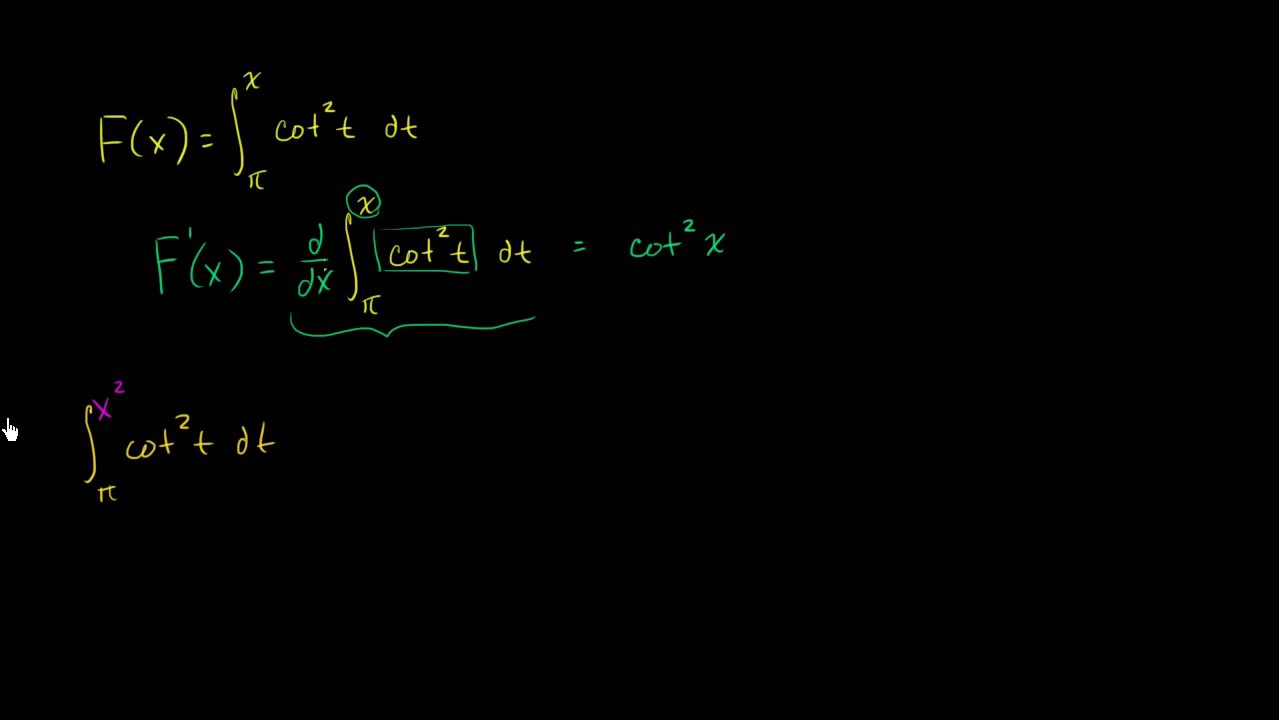 F(x) = ∫_π^x cot² t dt
F'(x) = d/dx ∫_π^x cot² t dt = cot² x
∫_π^{x²} cot² t dt